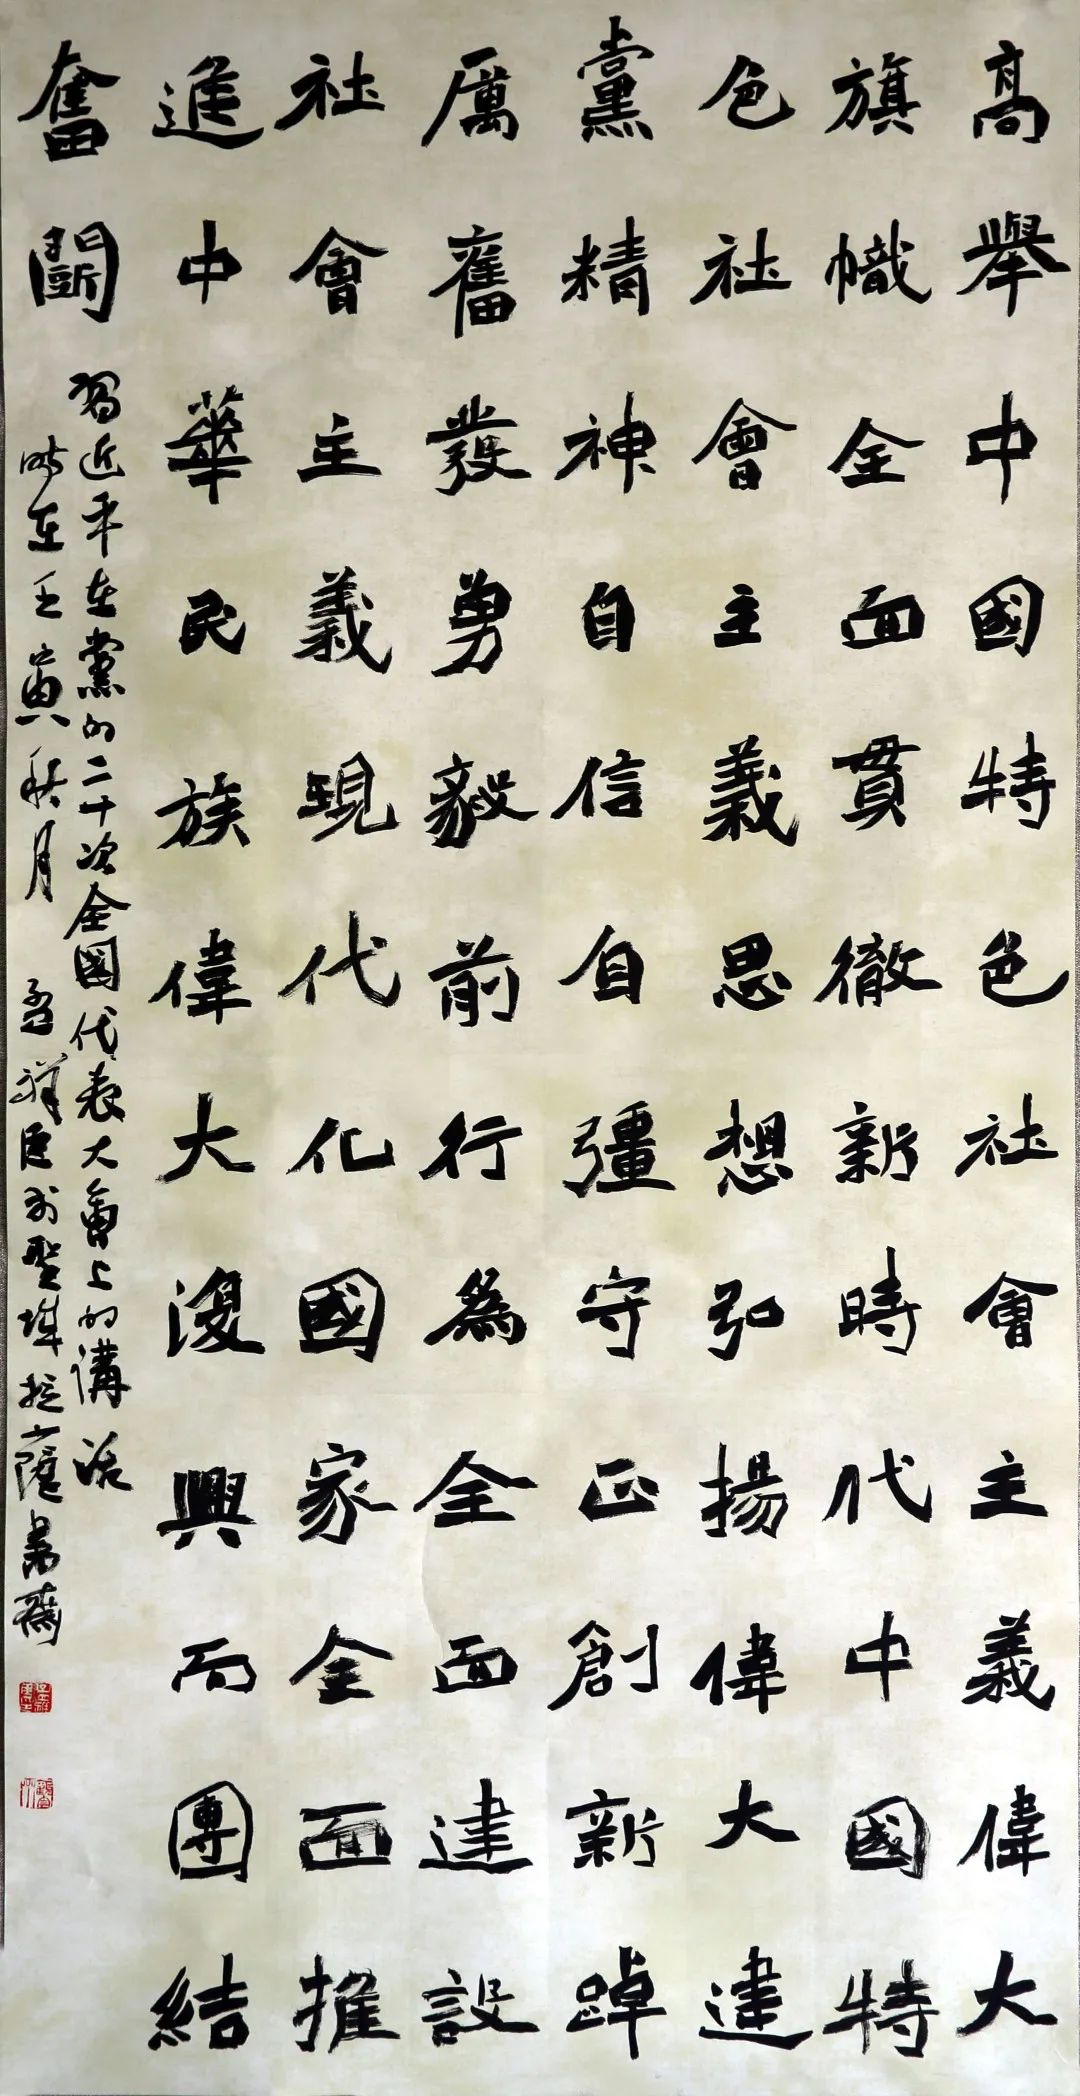 高舉中國特色社會主義偉大
旗幟全面貫徹新時代中國特
色社會主義思想弘揚偉大建
黨精神自信自彊守正創新踔
厲奮發勇毅前行為全面建設
社會主義現代化國家全面推
進中華民族偉大復興而團結
奮鬭
習近平在黨的二十次全國代表大會上的講話
時在壬寅秋月 孟祥臣於聖城書齋